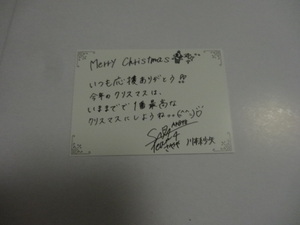 Merry Christmas
いつも応援ありがとう!!
今年のクリスマスは、
いままでで1番最高な
クリスマスにしようね